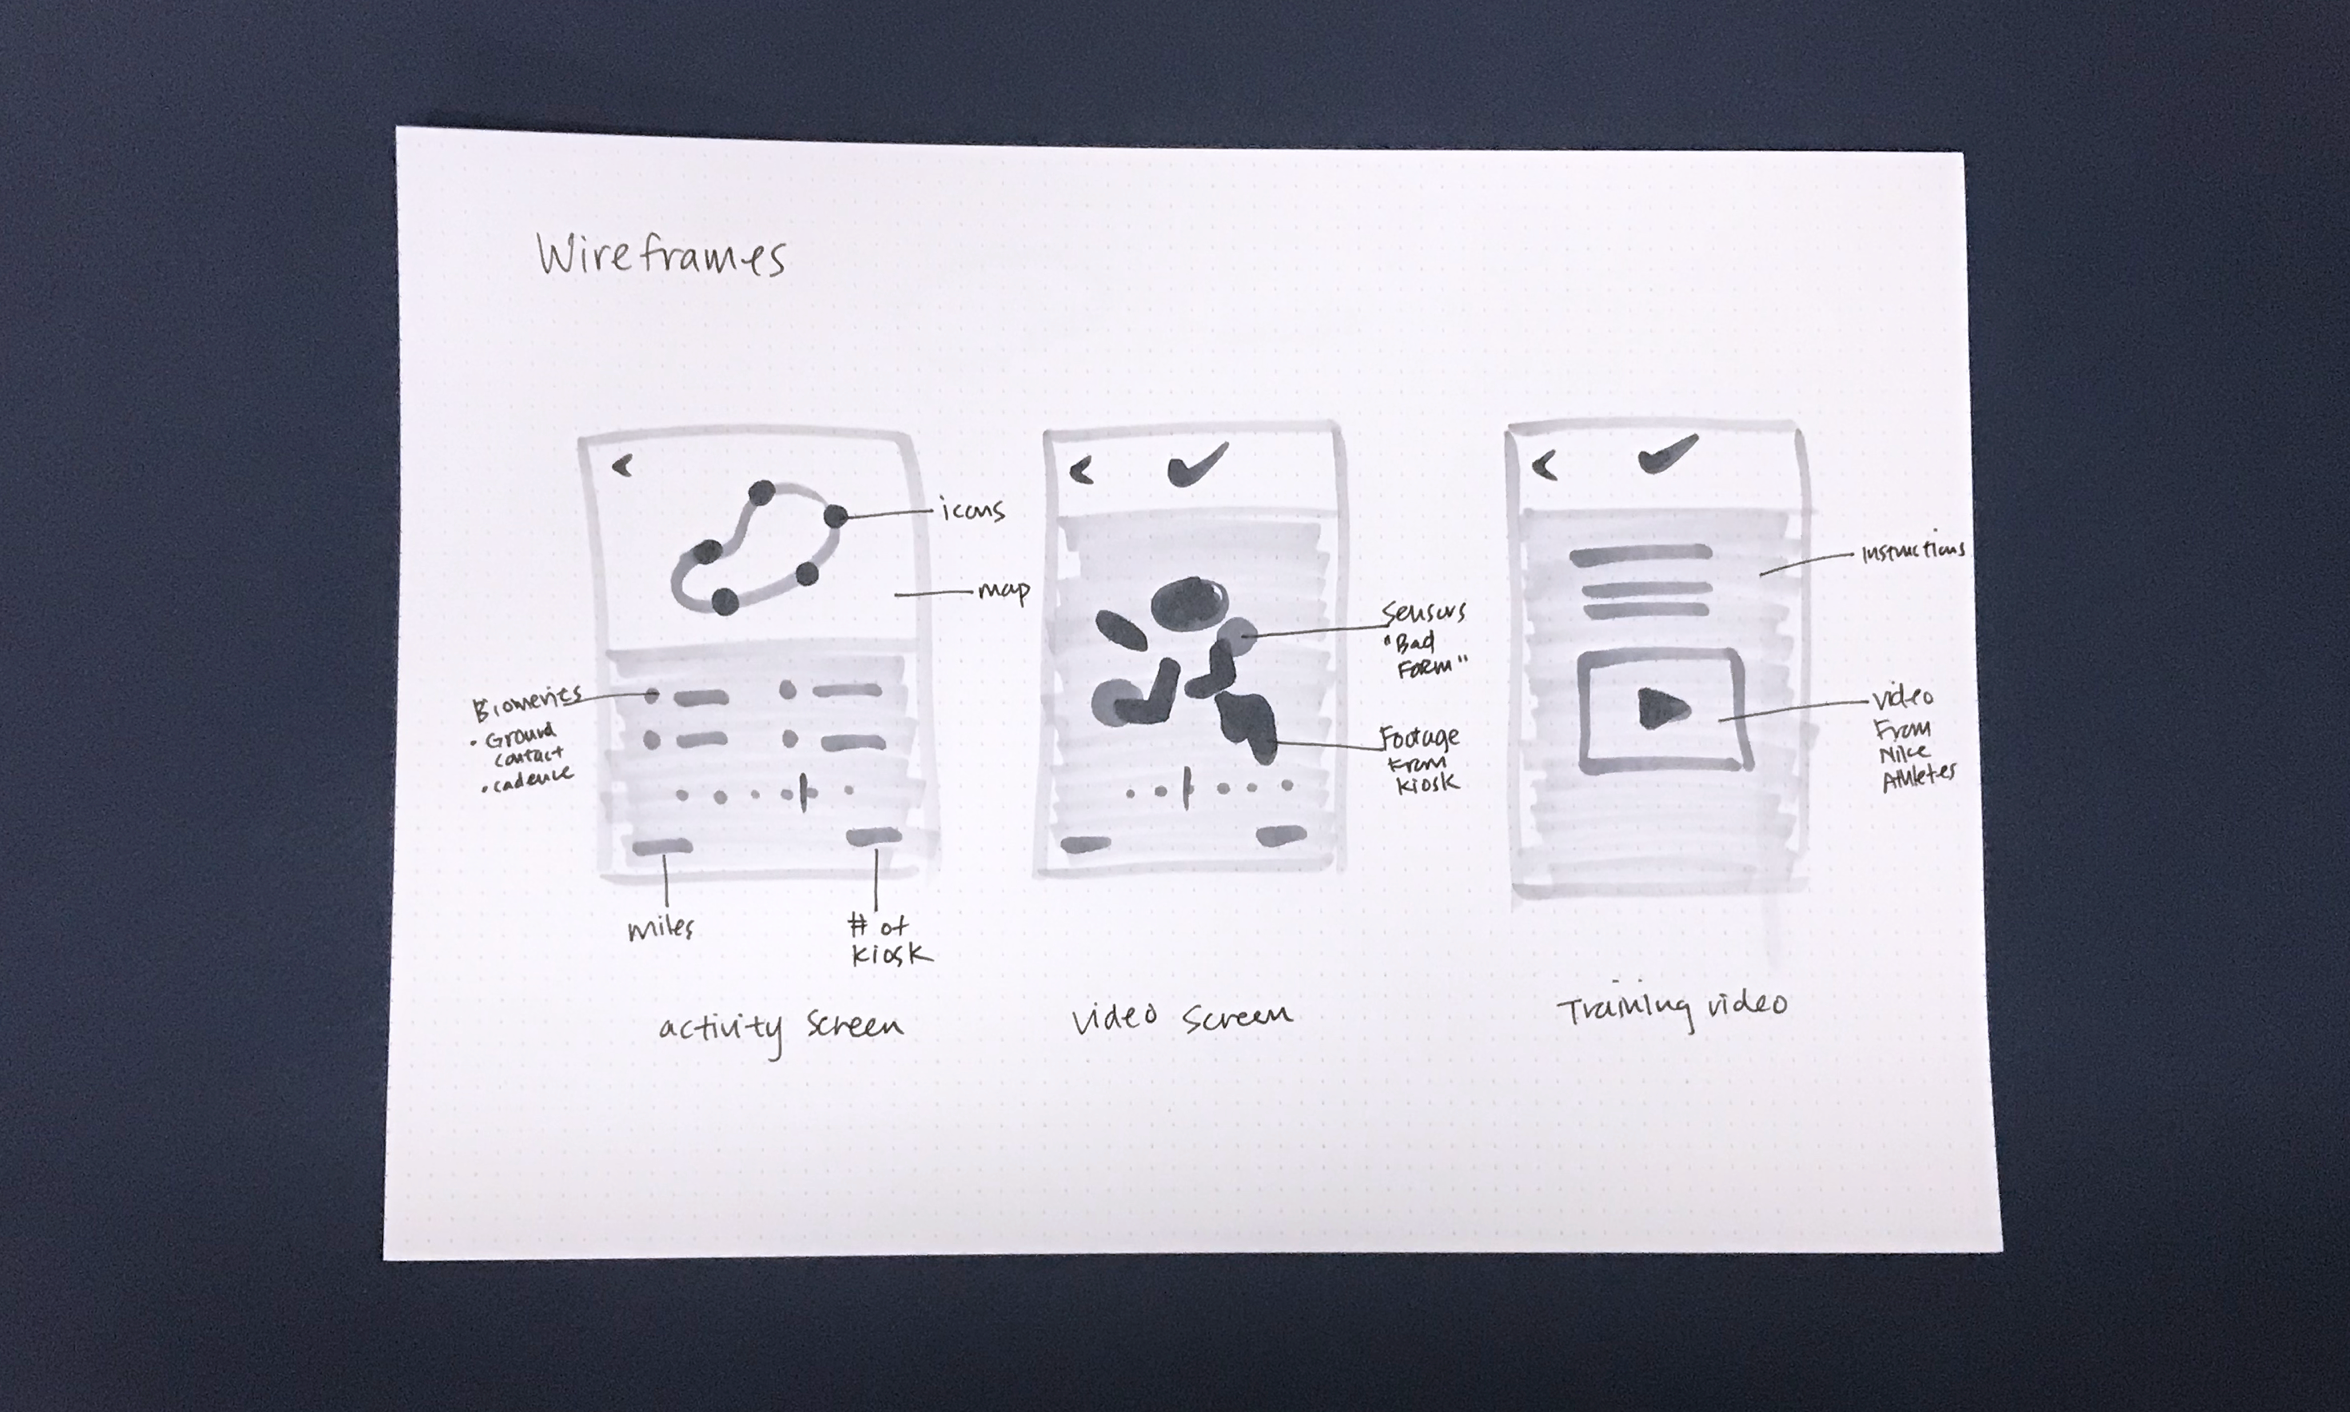 Wireframes
icons
map
Biometrics
• Ground
contact
• cadence
miles
# of
kiosk
activity screen
Sensors
"Bad
Form"
Footage
From
kiosk
video screen
instructions
video
From
Nike
Athletes
Training video